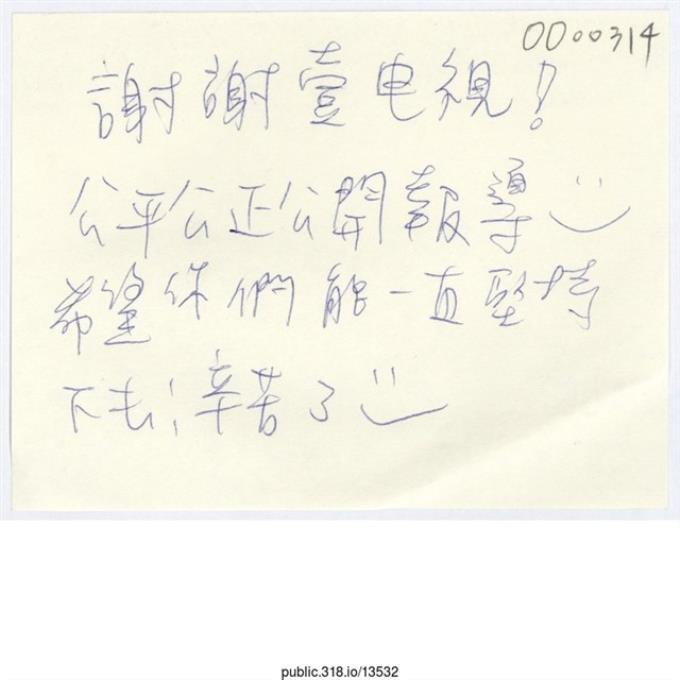 0000314
謝謝壹电視!
公平公正公開報導
希望你們能一直堅持
下去!辛苦了
public.318.io/13532